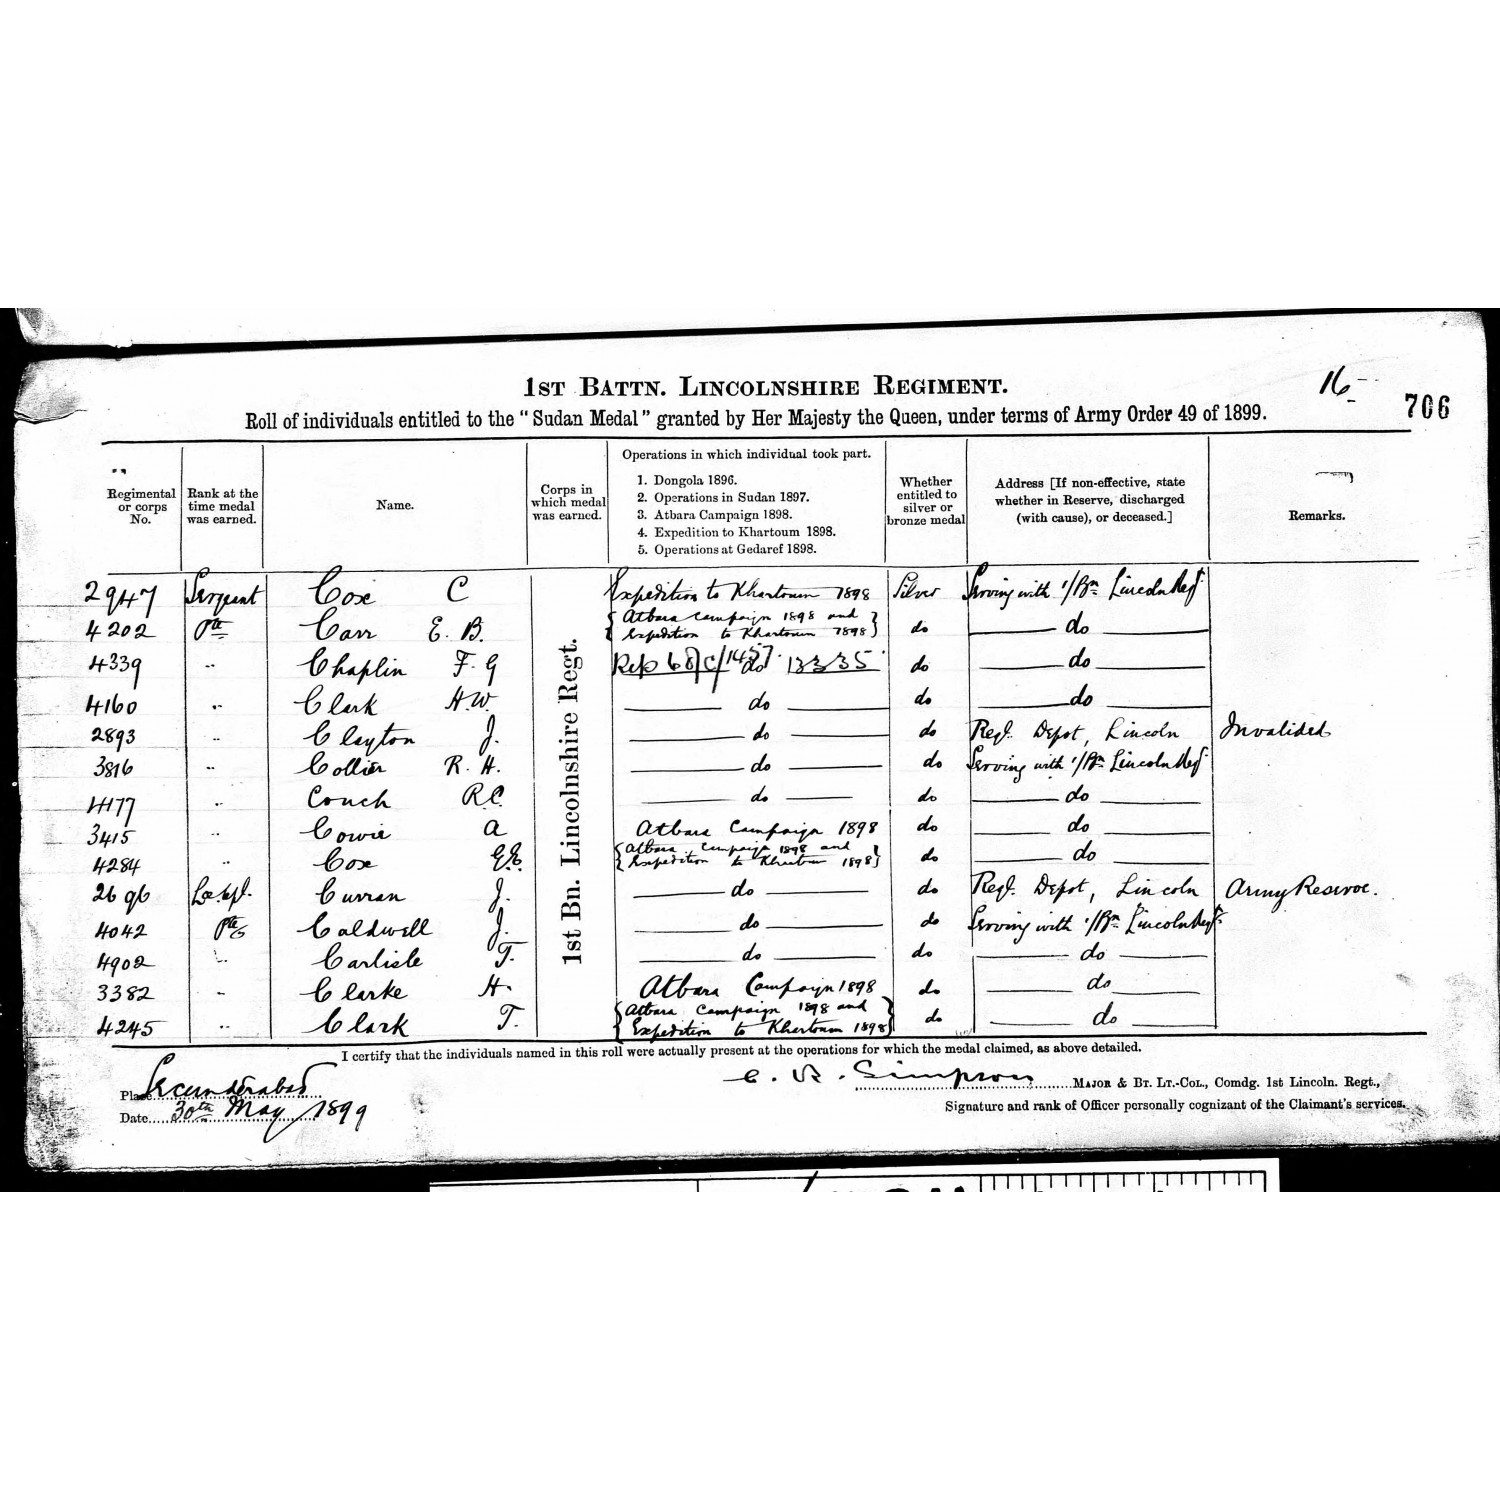 16
706
1ST BATTN. LINCOLNSHIRE REGIMENT.
Roll of individuals entitled to the "Sudan Medal" granted by Her Majesty the Queen, under terms of Army Order 49 of 1899.
Regimental or corps No.
Rank at the time medal was earned.
Name.
Corps in which medal was earned.
Operations in which individual took part.
1. Dongola 1896.
2. Operations in Sudan 1897.
3. Atbara Campaign 1898.
4. Expedition to Khartoum 1898.
5. Operations at Gedaref 1898.
Whether entitled to silver or bronze medal
Address [If non-effective, state whether in Reserve, discharged (with cause), or deceased.]
Remarks.
1st Bn. Lincolnshire Regt.
2947 Sergeant Cox C Expedition to Khartoum 1898 Silver Serving with 1/Bn Lincoln Regt
4202 Pte Carr E. B. { Atbara Campaign 1898 and Expedition to Khartoum 1898 } do do
4339 " Chaplin F. G do do do
4160 " Clark H.W. do do do
2893 " Clayton J. do do Regl. Depot, Lincoln Invalided
3816 " Collier R. H. do do Serving with 1/Bn Lincoln Regt
4177 " Couch R.C. do do do
3415 " Cowie A Atbara Campaign 1898 do do
4284 " Cox { Atbara Campaign 1898 and Expedition to Khartoum 1898 } do do
2696 Curran J. do do Regl. Depot, Lincoln Army Reserve.
4042 Pte Caldwell J. do do Serving with 1/Bn Lincoln Regt
4902 " Carlisle T. do do do
3382 " Clarke H. Atbara Campaign 1898 do do
4245 " Clark T. { Atbara Campaign 1898 and Expedition to Khartoum 1898 } do do
I certify that the individuals named in this roll were actually present at the operations for which the medal claimed, as above detailed.
Place Secunderabad
Date 30th May 1899
C. R. Simpson MAJOR & BT. LT.-COL., Comdg. 1st Lincoln. Regt.,
Signature and rank of Officer personally cognizant of the Claimant's services.